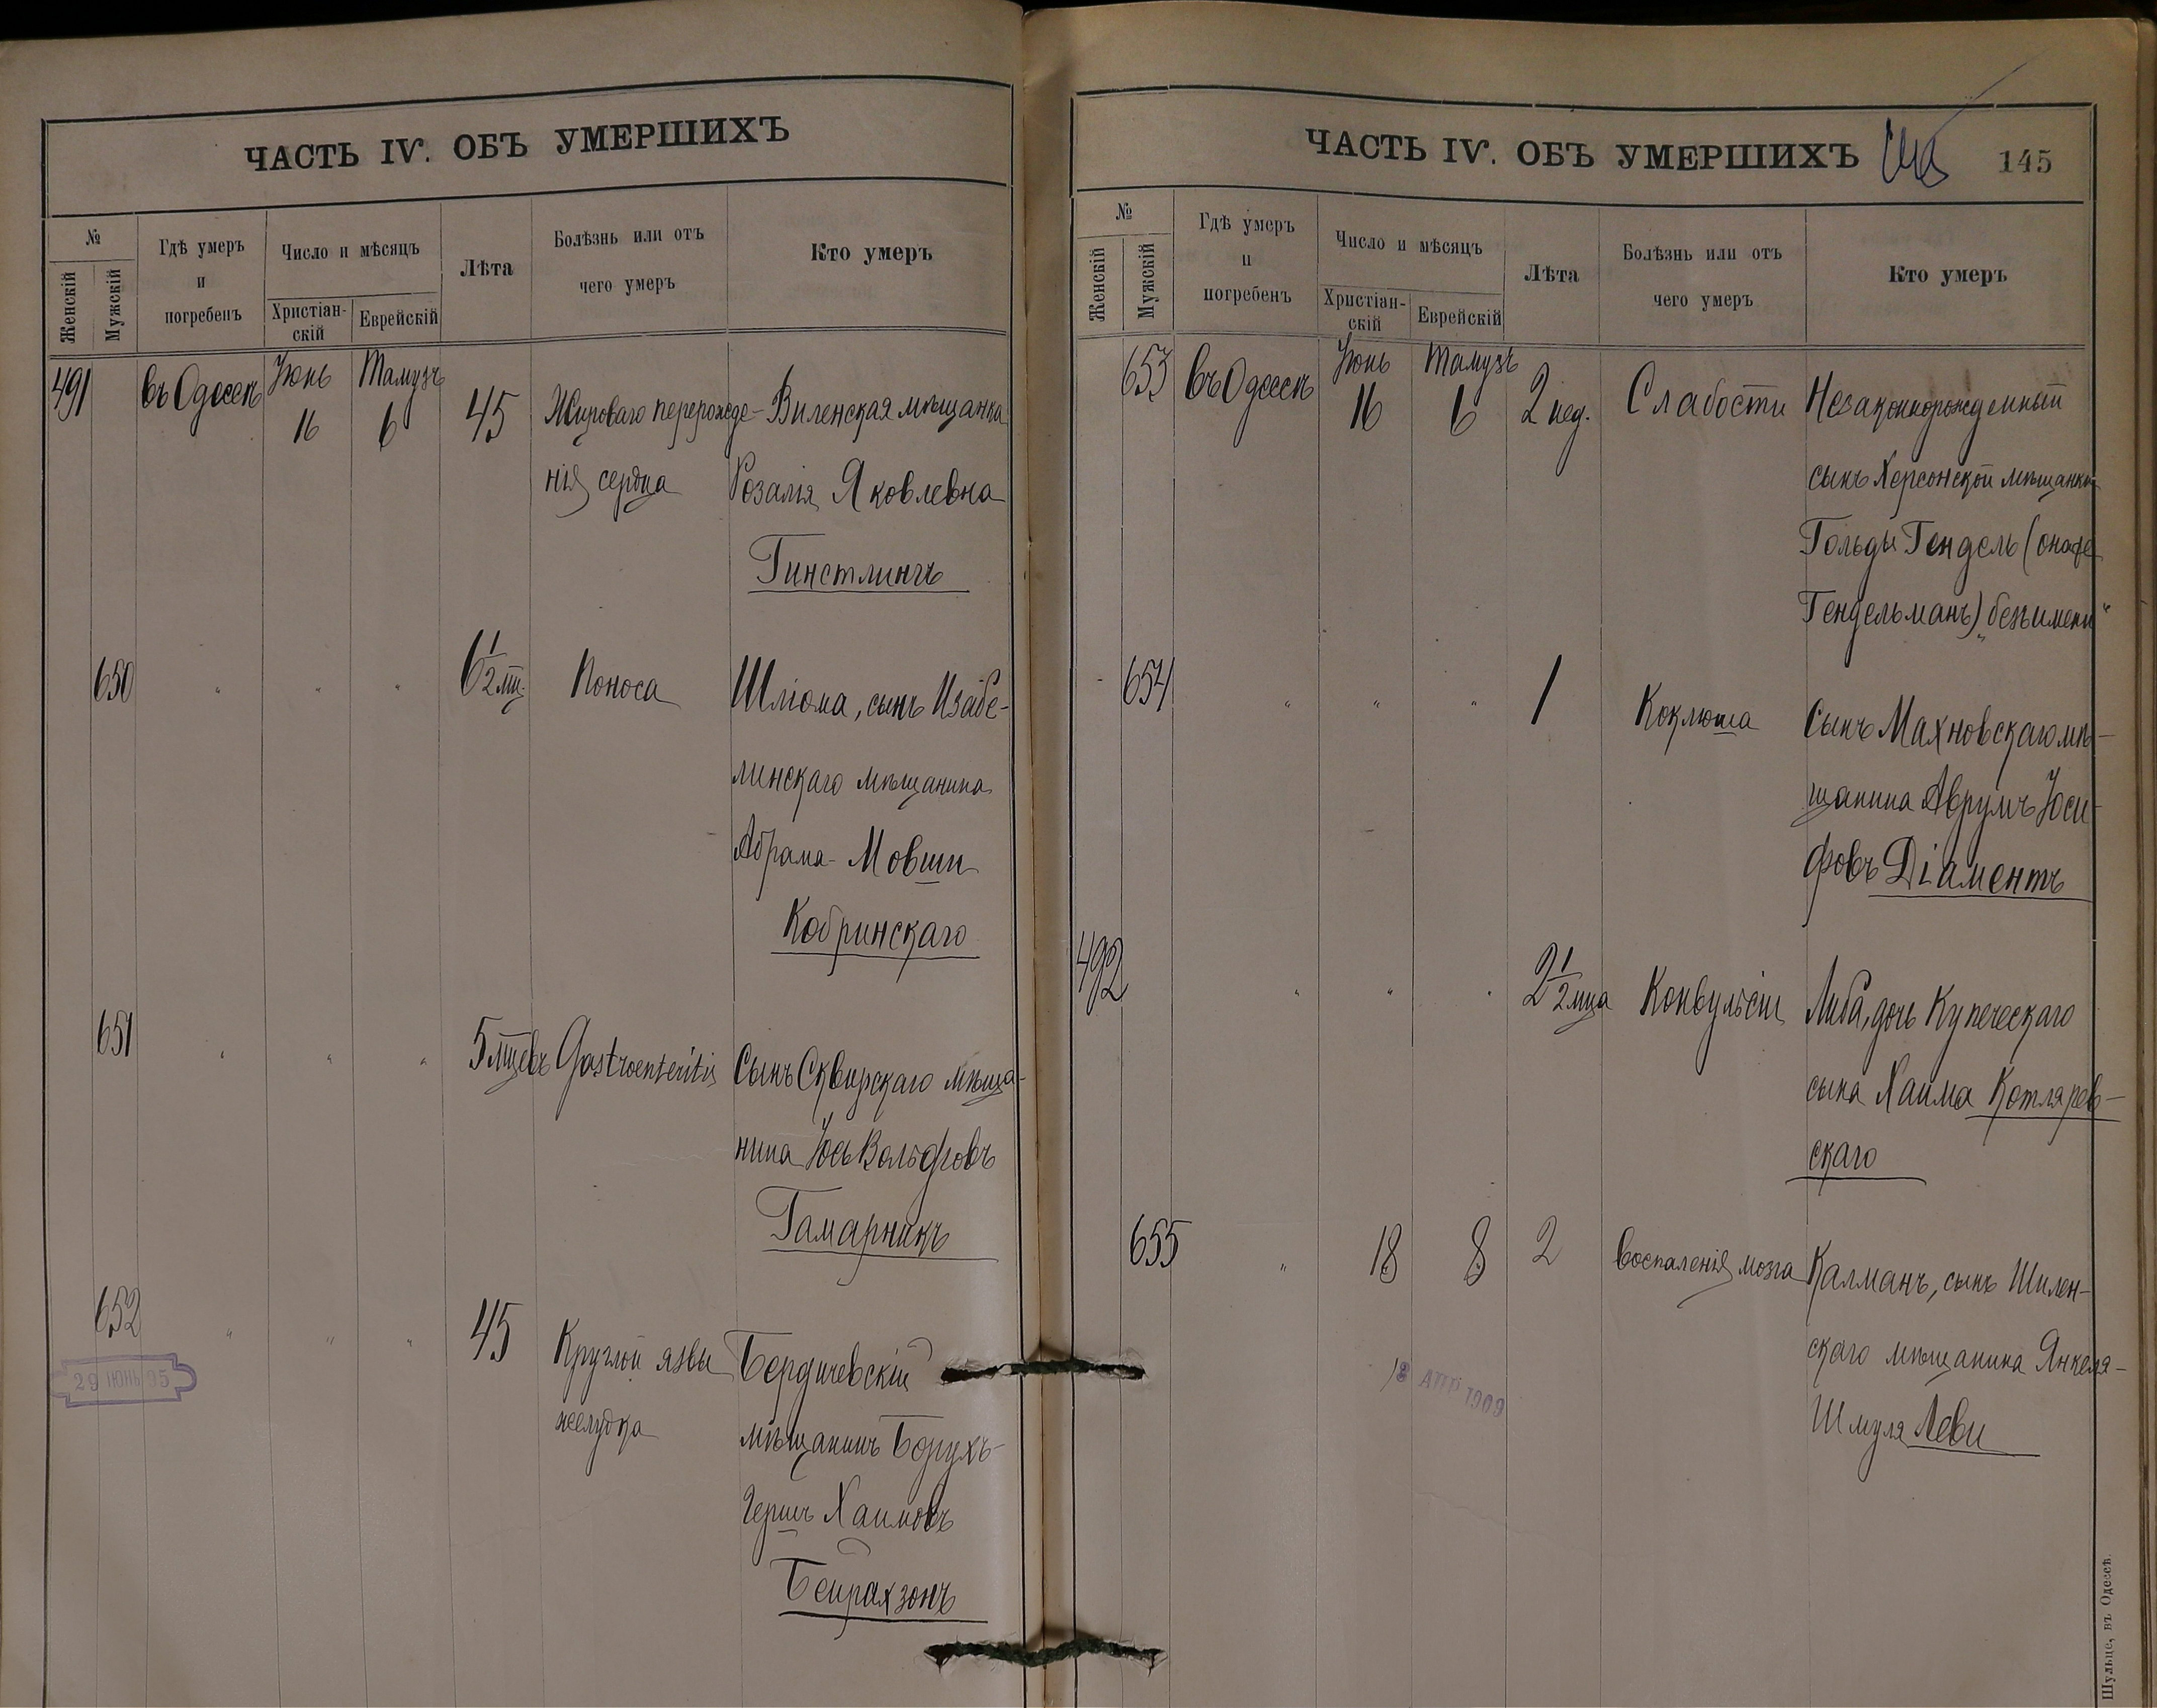 ЧАСТЬ IV. ОБЪ УМЕРШИХЪ
№
Женскій
Мужскій
Гдѣ умеръ
и
погребенъ
Число и мѣсяцъ
Христіан-
скій
Еврейскій
Лѣта
Болѣзнь или отъ
чего умеръ
Кто умеръ
491 въ Одессѣ Іюнь 16 Тамузъ 6 45 Жироваго перерожде- Виленская мѣщанка
нія сердца Розалія Яковлевна
Гинстлингъ
650 " " " 6 1/2 мц. Поноса Шліома, сынъ Изабе-
линскаго мѣщанина
Абрама-Мовши
Кобринскаго
651 " " " 5 мцевъ Gastroenteritis Сынъ Сквирскаго мѣща-
нина Іось Вольфовъ
Гамарникъ
652 " " " 45 Круглой язвы Бердичевскій
желудка мѣщанинъ Борухъ-
Гершъ Хаимовъ
Бейрахзонъ
29 ІЮНЬ 95
ЧАСТЬ IV. ОБЪ УМЕРШИХЪ 145
№
Женскій
Мужскій
Гдѣ умеръ
и
погребенъ
Число и мѣсяцъ
Христіан-
скій
Еврейскій
Лѣта
Болѣзнь или отъ
чего умеръ
Кто умеръ
653 въ Одессѣ Іюнь 16 Тамузъ 6 2 нед. Слабости Незаконнорожденный
сынъ Херсонской мѣщанки
Гольды Гендель (она же
Гендельманъ) „безъ имени“
654 " " " 1 Коклюша Сынъ Махновскаго мѣ-
щанина Аврумъ Іоси-
фовъ Діаментъ
492 " " " 2 1/2 мца Конвульсіи Либа, дочь Купеческаго
сына Хаима Котлярев-
скаго
655 " 18 8 2 Воспаленія мозга Калманъ, сынъ Шилен-
скаго мѣщанина Янкеля-
Шмуля Леви
18 АПР 1909
Шульце, въ Одессѣ.